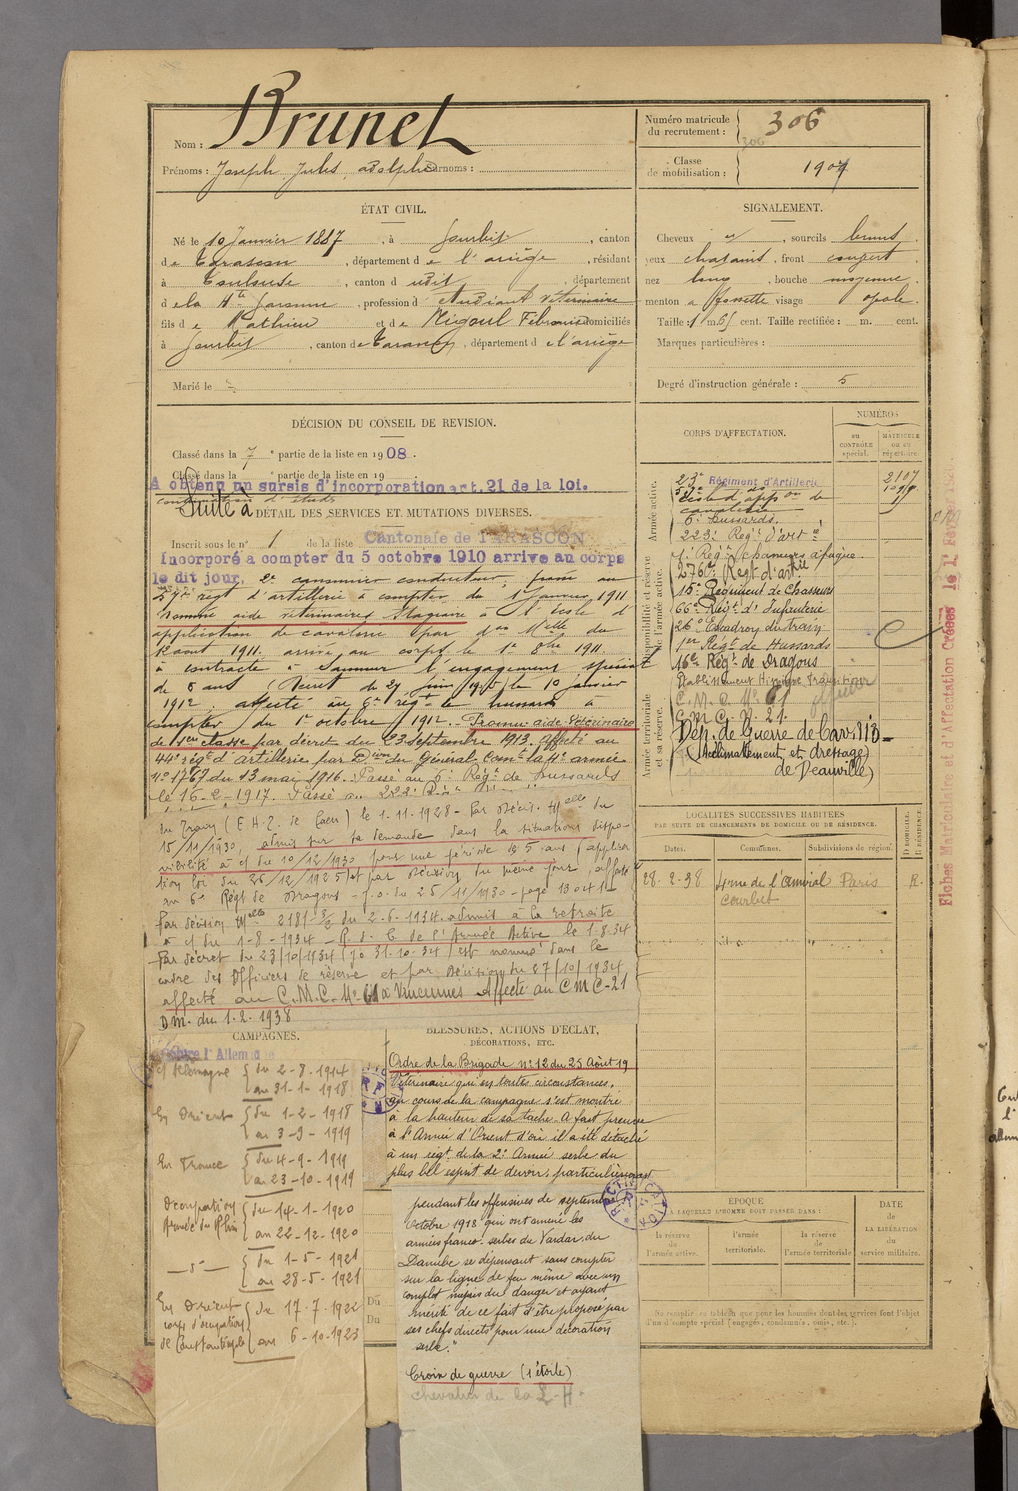 Nom : Brunet
Prénoms : Joseph Jules Adolphe Surnoms :
Numéro matricule
du recrutement : 306
306
Classe
de mobilisation : 1907
ÉTAT CIVIL.
Né le 10 Janvier 1887, à Gourbit, canton
de Tarascon, département de l'ariège, résidant
à Toulouse, canton d udit, département
de la Hte Garonne, profession d'Etudiant Vétérinaire
fils de Mathieu et de Rigoul domiciliés
à Gourbit, canton de Tarascon, département de l'ariège
Marié le
SIGNALEMENT.
Cheveux et, sourcils bruns.
yeux chatains, front couvert.
nez long, bouche moyenne.
menton a fossette visage ovale.
Taille : 1 m. 65 cent. Taille rectifiée : m. cent.
Marques particulières :
Degré d'instruction générale : 5
DÉCISION DU CONSEIL DE REVISION.
Classé dans la 7e partie de la liste en 1908.
Classé dans la e partie de la liste en 19
A obtenu un sursis d'incorporation art. 21 de la loi.
Suite à
DÉTAIL DES SERVICES ET MUTATIONS DIVERSES.
Inscrit sous le n° 1 de la liste Cantonale de TARASCON
Incorporé a compter du 5 octobre 1910 arrive au corps
le dit jour. 2e canonnier conducteur, passé au
régt d'artillerie à compter du 1 janvier 1911
Nommé aide vétérinaire Stagiaire à l'école d'
application de cavalerie par
août 1911. arrivé au corps le 1er 8bre 1911.
a contracté à Saumur l'engagement spécial
de 6 ans le 10 janvier
1912. affecté au 6e régt de hussards à
compter du 1er octobre 1912. Promu aide Vétérinaire
de 1ère classe par décret du 23 septembre 1913. affecté au
44e régt d'Artillerie par Don du Général Comt la IIe armée
n° 1767 du 13 mai 1916. Passé au 6e Régt de hussards
le 16-2-1917. Passé au 222e
du Train (E.H.R. de Caen) le 1-11-1928 - Par décis. Mlle du
15/11/1930, admis sur sa demande dans la situation dispo-
nibilité à c/ du 10/12/1930 pour une période de 5 ans (applica
tion loi du 26/12/1925) et par décision du même jour, affecté
au 6e Régt de Dragons - J.O. du 25/11/1930 - page
Par décision Mlle 2181 du 2-6-1934 admis à la retraite
à c/ du 1-8-1934 - R. d. C. de l'Armée Active le 1.8.34
Par décret du 23/10/1934 (J.o 31.10.34) est nommé dans le
cadre des Officiers de réserve et par Décision du 27/10/1934
affecté au C.M.C. N° 61 à Vincennes Affecté au CMC-21
DM. du 1-2-1938
CORPS D'AFFECTATION.
NUMÉROS
AU
CONTRÔLE
spécial.
MATRICULE
ou au
répertoire.
Armée active.
Disponibilité et réserve
de l'armée active.
Armée territoriale
et sa réserve.
23e Régiment d'Artillerie 2107
École d'appon de
cavalerie
6e Hussards.
223e Régt d'artie
1er Régt chasseurs afrique.
276e Régt d'artie
15e Régiment de Chasseurs
66e Régt d'Infanterie
26e Escadron du train
1er Régt de Hussards
16e Régt de Dragons
Etablissement Hippique Transition
C.M.C. N° 61
C.M.C. N° 21.
Dép. de Guerre de Cav.
(Acclimattement et dressage)
de Deauville)
LOCALITÉS SUCCESSIVES HABITÉES
PAR SUITE DE CHANGEMENTS DE DOMICILE OU DE RÉSIDENCE.
Dates. Communes. Subdivisions de région. D DOMICILE. R RÉSIDENCE.
28-2-38 4 rue de l'amiral Paris R.
Courbet
CAMPAGNES.
Contre l'Allemagne
c/ Allemagne { du 2-8-1914
au 31-1-1918
En Orient { du 1-2-1918
au 3-9-1919
En France { du 4-9-1919
au 23-10-1919
Occupation
Armée du Rhin { du 14-1-1920
au 22-12-1920
—d°— { du 1-5-1921
au 28-5-1921
En Orient
corps d'occupation
de Constantinople { du 17-7-1922
au 6-10-1923
BLESSURES, ACTIONS D'ÉCLAT,
DÉCORATIONS, ETC.
Ordre de la Brigade n° 12 du 25 Août 19
Vétérinaire qui en toutes circonstances,
au cours de la campagne s'est montré
à la hauteur de sa tache. A fait preuve
à l'Armée d'Orient d'où il a été détaché
à un régt de la 2e Armée serbe du
plus bel esprit de devoir, particulièrement
pendant les offensives de septembre
octobre 1918 qui ont amené les
armées franco-serbes du Vardar au
Danube se dépensant sans compter
sur la ligne de feu même avec un
complet mépris du danger et ayant
mérité de ce fait d'être proposé par
ses chefs directs pour une décoration
serbe."
Croix de guerre (1 étoile)
chevalier de la L-H.
Du
Du
RECTIFICATION
ÉPOQUE
À LAQUELLE L'HOMME DOIT PASSER DANS :
la réserve
de
l'armée active.
l'armée
territoriale.
la réserve
de
l'armée territoriale
DATE
de
LA LIBÉRATION
du
service militaire.
Ne remplir ce tableau que pour les hommes dont les services font l'objet
d'un compte spécial (engagés, condamnés, omis, etc.)
Fiches Matricule et d'Affectation Créées le 1